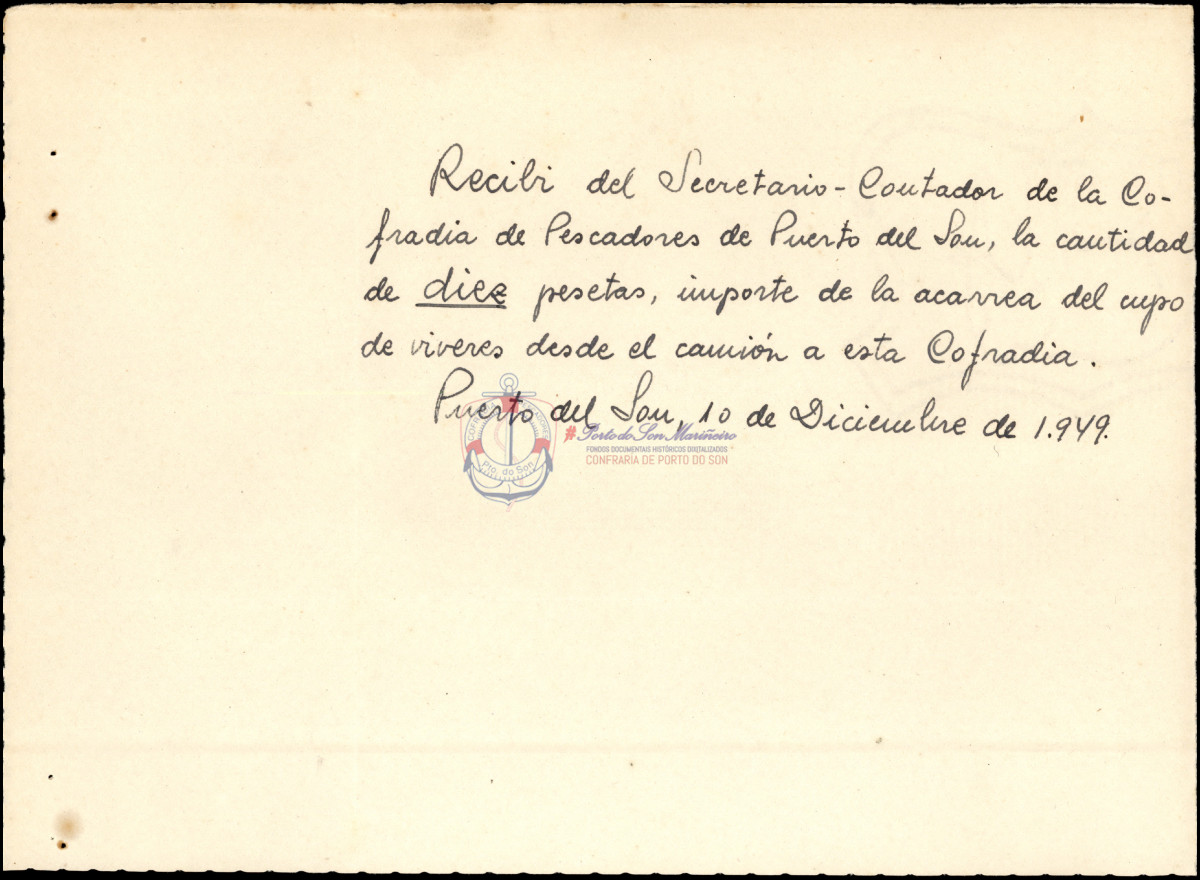 Recibi del Secretario-Contador de la Co-
fradia de Pescadores de Puerto del Son, la cantidad
de diez pesetas, importe de la acarrea del cupo
de viveres desde el camión a esta Cofradia.
Puerto del Son, 10 de Diciembre de 1.949.
Pto. do Son
#Porto do Son Mariñeiro
FONDOS DOCUMENTAIS HISTÓRICOS DIXITALIZADOS
CONFRARÍA DE PORTO DO SON